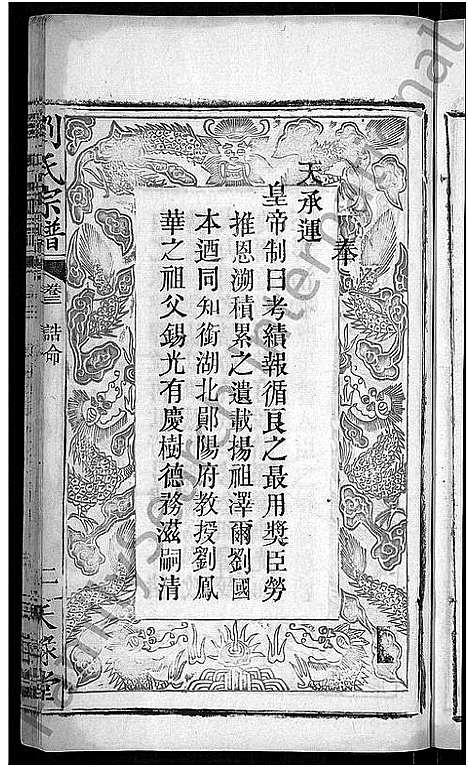 奉
天承運
皇帝制曰考績報循良之最用奬臣勞
推恩溯積累之遺載揚祖澤爾劉國
本迺同知銜湖北鄖陽府教授劉鳳
華之祖父錫光有慶樹德務滋嗣清
劉氏宗譜
卷三
誥命
二